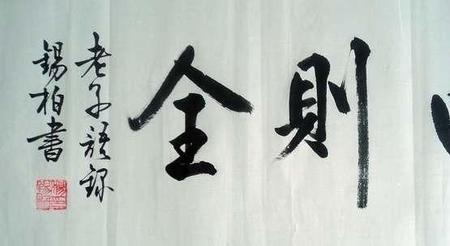 則全
老子語錄
錫柏書